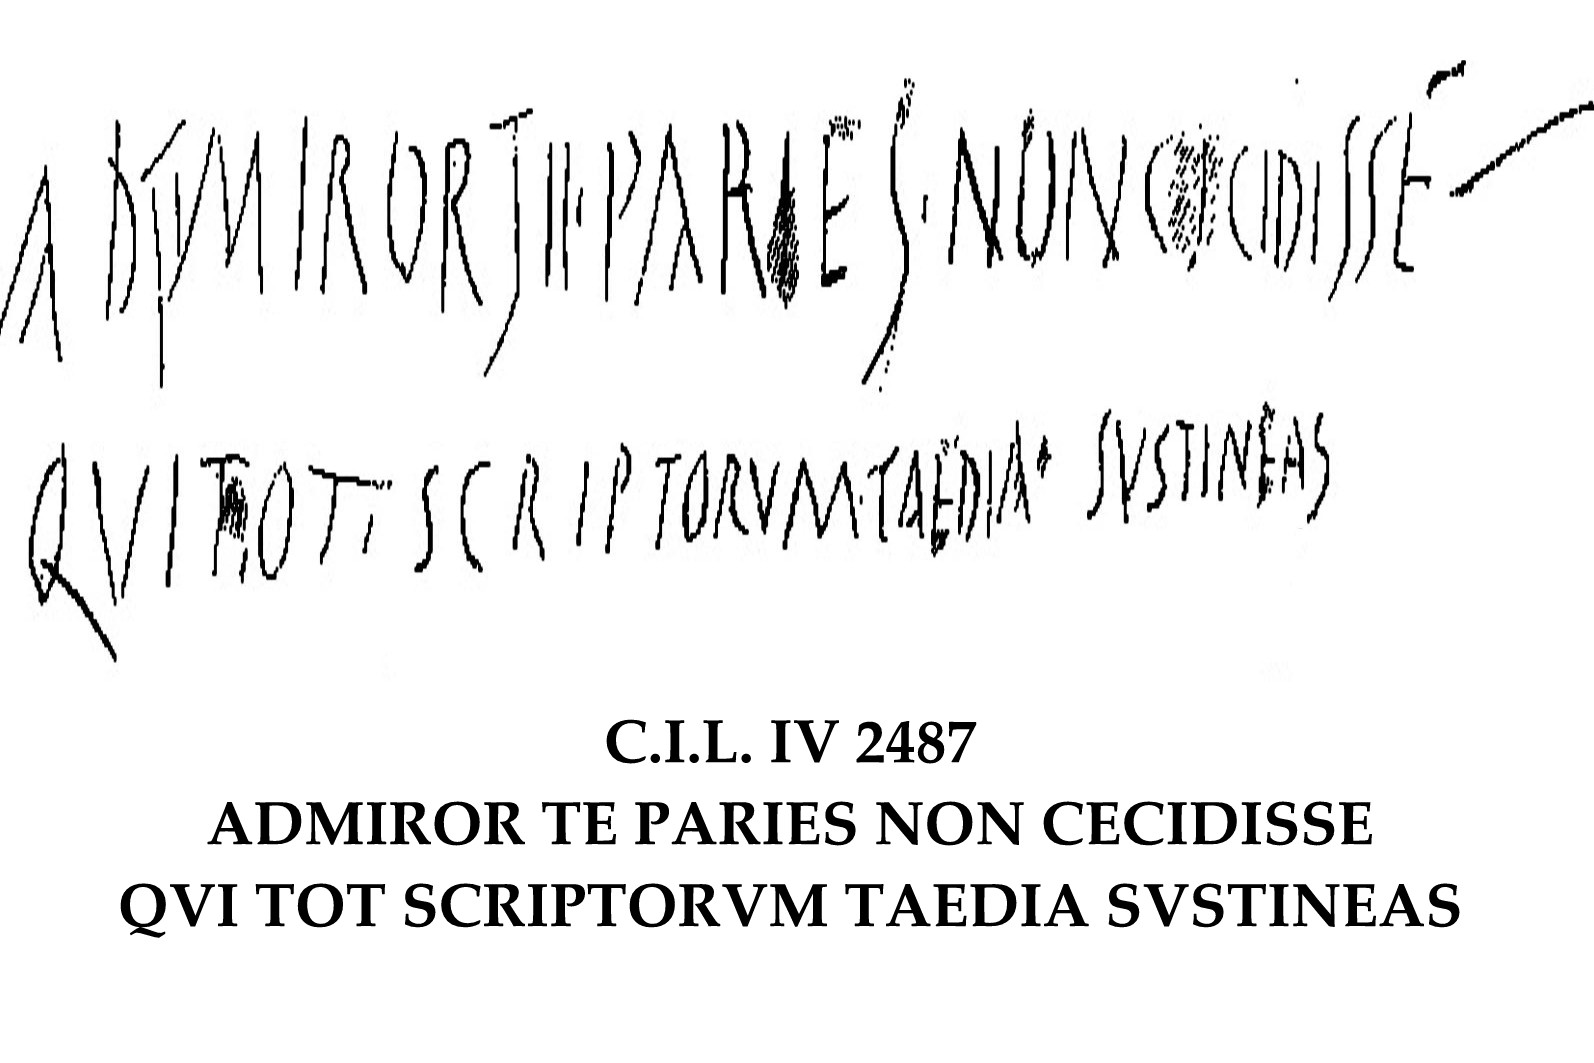 ADMIROR TE PARIES NON CECIDISSE
QVI TOT SCRIPTORVM TAEDIA SVSTINEAS
C.I.L. IV 2487
ADMIROR TE PARIES NON CECIDISSE
QVI TOT SCRIPTORVM TAEDIA SVSTINEAS